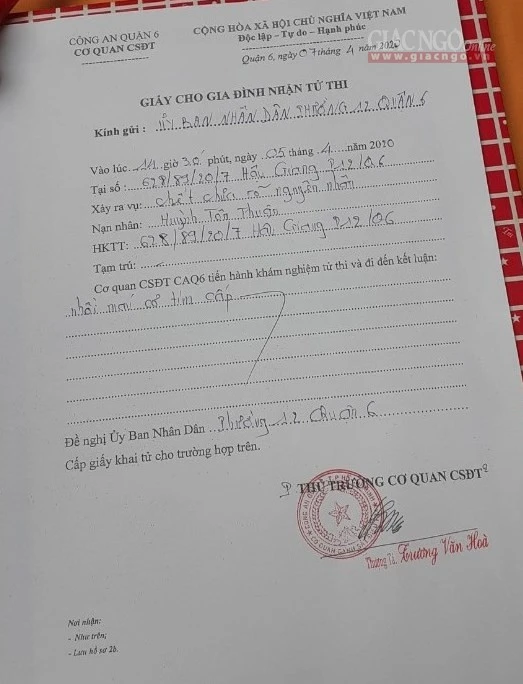 CÔNG AN QUẬN 6
CƠ QUAN CSĐT
CỘNG HÒA XÃ HỘI CHỦ NGHĨA VIỆT NAM
Độc lập - Tự do - Hạnh phúc
Quận 6, ngày 07 tháng 4 năm 2020
GIACNGO Online
www.giacngo.vn
GIẤY CHO GIA ĐÌNH NHẬN TỬ THI
Kính gửi : ỦY BAN NHÂN DÂN PHƯỜNG 12 QUẬN 6
Vào lúc 11 giờ 30 phút, ngày 05 tháng 4 năm 2010
Tại số : 678/89/20/7 Hậu Giang P12/Q6
Xảy ra vụ: chết chưa rõ nguyên nhân
Nạn nhân: Huỳnh Tấn Thuận
HKTT: 678/89/20/7 Hậu Giang P12/Q6
Tạm trú:
Cơ quan CSĐT CAQ6 tiến hành khám nghiệm tử thi và đi đến kết luận:
nhồi máu cơ tim cấp
Đề nghị Ủy Ban Nhân Dân Phường 12 Quận 6
Cấp giấy khai tử cho trường hợp trên.
THỦ TRƯỞNG CƠ QUAN CSĐT
Trương Văn Hoà
Nơi nhận:
- Như trên;
- Lưu hồ sơ 2b.